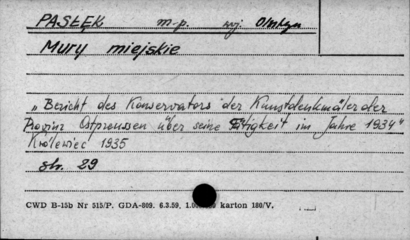 PASŁĘK m-p. woj. Olsztyn
Mury miejskie
„Bericht des Konservators der Kunstdenkmäler der
Provinz Ostpreussen über seine Tätigkeit im Jahre 1934"
Królewiec 1935
str. 29
CWD B-15b Nr 515/P. GDA-809. 6.3.59. karton 180/V.